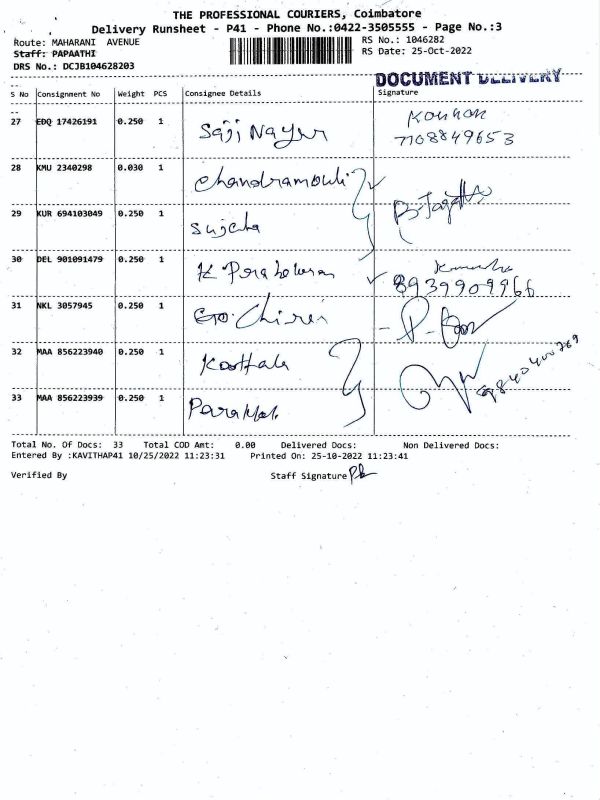 THE PROFESSIONAL COURIERS, Coimbatore
Delivery Runsheet - P41 - Phone No.:0422-3505555 - Page No.:3
Route: MAHARANI AVENUE RS No.: 1046282
Staff: PAPAATHI RS Date: 25-Oct-2022
DRS No.: DCJB104628203
DOCUMENT DELIVERY
S No Consignment No Weight PCS Consignee Details Signature
27 EDQ 17426191 0.250 1 Saji Nayer 7108849653
28 KMU 2340298 0.030 1 Chandramouli
29 KUR 694103049 0.250 1 Sujeta
30 DEL 901091479 0.250 1 K 8939909966
31 NKL 3057945 0.250 1
32 MAA 856223940 0.250 1
33 MAA 856223939 0.250 1
Total No. Of Docs: 33 Total COD Amt: 0.00 Delivered Docs: Non Delivered Docs:
Entered By :KAVITHAP41 10/25/2022 11:23:31 Printed On: 25-10-2022 11:23:41
Verified By Staff Signature